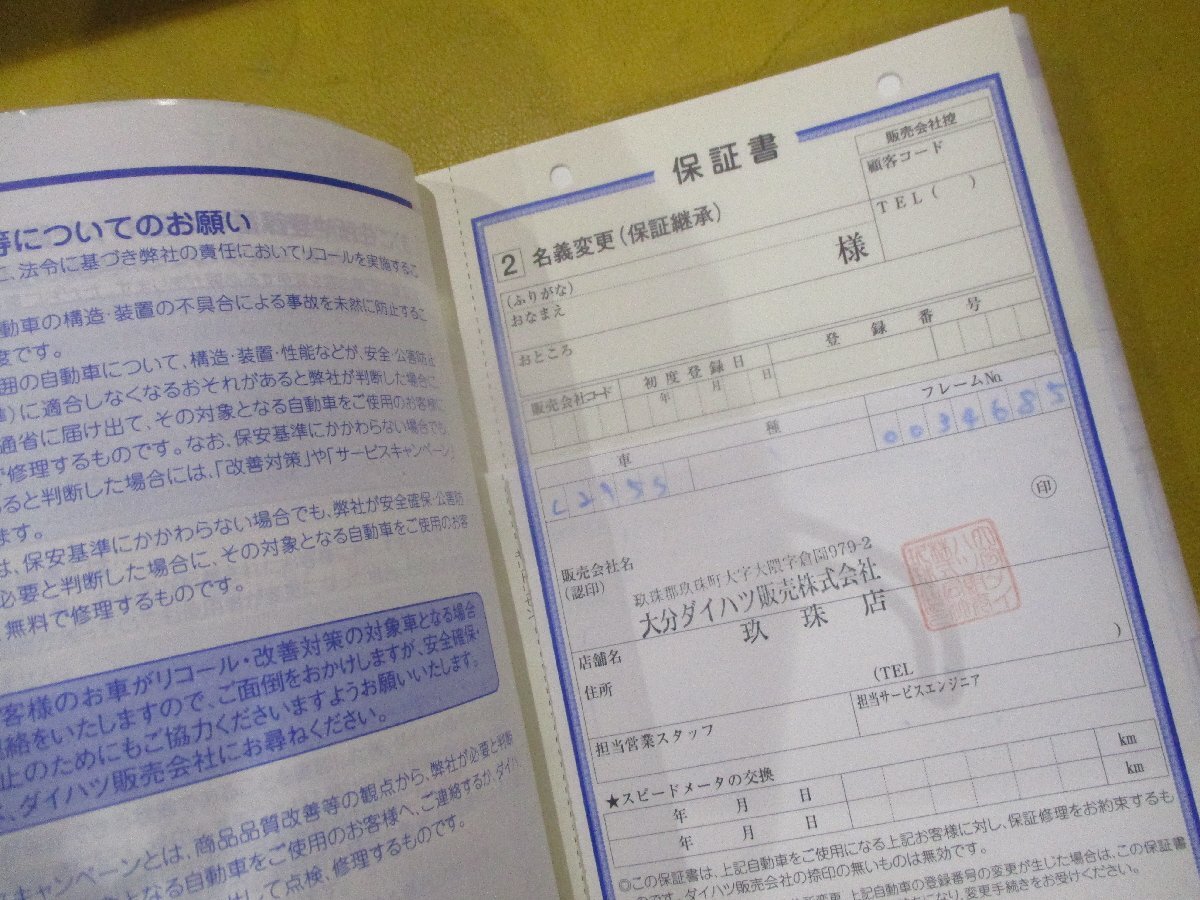 等についてのお願い
に、法令に基づき弊社の責任においてリコールを実施するこ
動車の構造・装置の不具合による事故を未然に防止するこ
度です。
囲の自動車について、構造・装置・性能などが、安全・公害防止
)に適合しなくなるおそれがあると弊社が判断した場合に
通省に届け出て、その対象となる自動車をご使用のお客様に
で修理するものです。なお、保安基準にかかわらない場合でも、
あると判断した場合には、「改善対策」や「サービスキャンペーン」
ます。
は、保安基準にかかわらない場合でも、弊社が安全確保・公害防
必要と判断した場合に、その対象となる自動車をご使用のお客
無料で修理するものです。
客様のお車がリコール・改善対策の対象車となる場合
絡をいたしますので、ご面倒をおかけしますが、安全確保・
止のためにもご協力くださいますようお願いいたします。
、ダイハツ販売会社にお尋ねください。
キャンペーンとは、商品品質改善等の観点から、弊社が必要と判断
となる自動車をご使用のお客様へ、ご連絡するか、ダイハ
して点検、修理するものです。
保証書
販売会社控
顧客コード
TEL( )
2 名義変更(保証継承)
(ふりがな)
おなまえ
様
おところ
販売会社コード 初度登録日 登録番号
年 月 日
車種 フレームNo.
L275S 0034685
印
販売会社名
(認印)
玖珠郡玖珠町大字大隈字倉園979-2
大分ダイハツ販売株式会社
玖珠店
店舗名
住所
(TEL )
担当営業スタッフ 担当サービスエンジニア
★スピードメータの交換
年 月 日 km
年 月 日 km
◎この保証書は、上記自動車をご使用になる上記お客様に対し、保証修理をお約束するも
のです。ダイハツ販売会社の捺印の無いものは無効です。
上記自動車の登録番号の変更が生じた場合は、この保証書
変更手続きをお受けください。